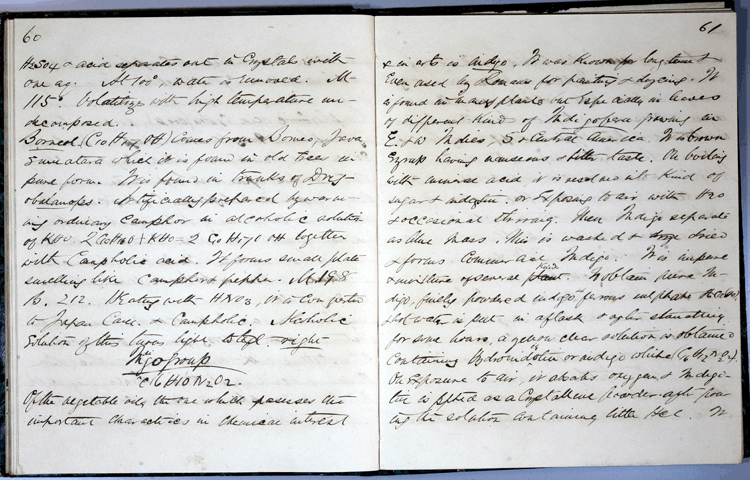 60
H2SO4 & acid separates out in Crystals with
one aq. At 100°, water is removed. M-
115°. Volatilizes with high temperature un-
decomposed.
Borneol (C10 H17 OH) Comes from Borneo, Java
Sumatara which it is found in old trees in
pure form. It is found in trunks of Dry-
obalanops. Artificially prepared by warm-
ing ordinary Camphor in alcoholic solution
of KHO. 2 C10H16O + KHO = 2 C10 H17O OH together
with Campholic acid. It forms small plate
smelling like Camphor & pepper. M 198
B. 212. Heating with HNO3, it is Converted
to Japan Cam. & Campholic. Alcoholic
Solution of this turns light to the right
Indigo Group
C16H10N2O2.
Of the vegetable oils the one which posesses the
important characteristics in chemical interest
61
& in arts is indigo. It was known for long time &
Even used by Romans for painting & dyeing. It
is found in many plants but Especially in leaves
of different kind of Indigofera growing in
E. & W Indies, S. & Central America. It is brown
Syrup having nauseous & bitter taste. On boiling
with mineral acid, it is resolved into kind of
sugar & indigotin, or Exposing to air with H2O
& occasional stirring. Then Indigo separate
as blue mass. This is washed & dried
& forms Commercial Indigo. It is impure
& mixture of several kinds. To obtain pure In-
digo, finely powdered indigo & ferrous sulphate
hot water is put in a flask & after standing
for some hours, a yellow clear solution is obtained
Containing Hydroindigotin or indigo white (C16H12N2O2).
On Exposure to air, it absorbs oxygen & Indigo-
tin is pptted as a Crystalline powder after pour-
ing the solution containing little HCl. It